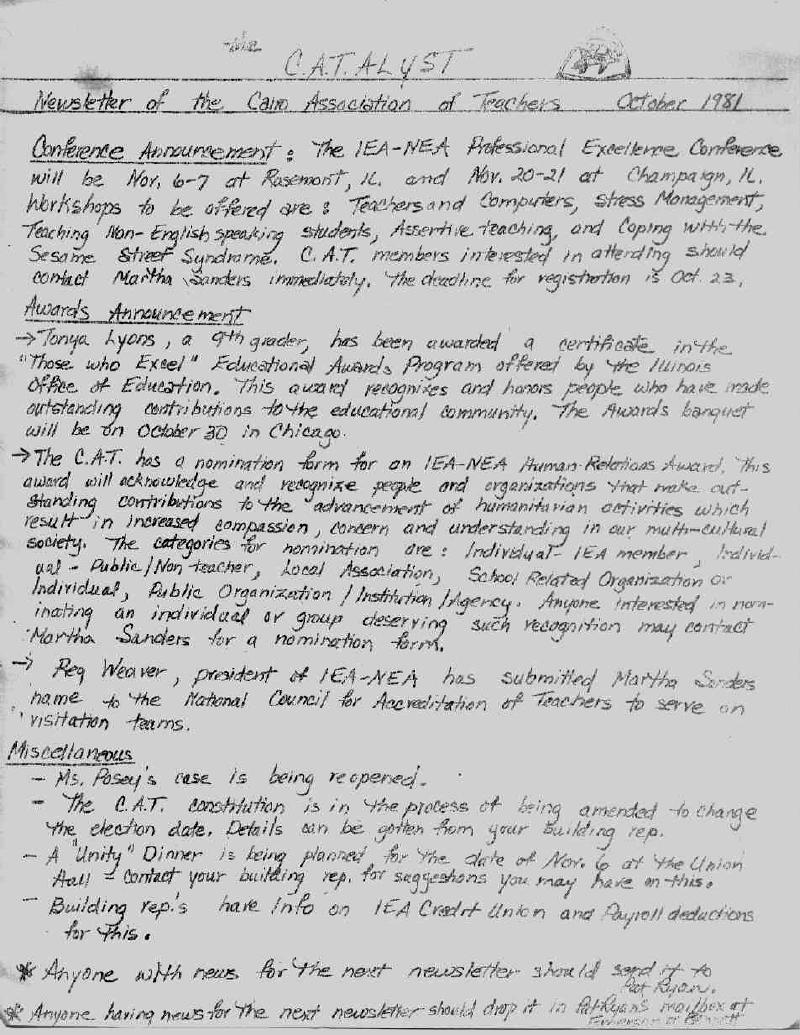 the
C.A.T.ALYST
Newsletter of the Cairo Association of Teachers October 1981
Conference Announcement: The IEA-NEA Professional Excellence Conference
will be Nov. 6-7 at Rosemont, IL. and Nov. 20-21 at Champaign, IL.
Workshops to be offered are: Teachers and Computers, Stress Management,
Teaching Non-English speaking students, Assertive teaching, and Coping with the
Sesame Street Syndrame. C.A.T. members interested in attending should
contact Martha Sanders immediately. The deadline for registration is Oct. 23.
Awards Announcement
→ Tonya Lyons, a 9th grader, has been awarded a certificate in the
"Those who Excel" Educational Awards Program offered by the Illinois
Office of Education. This award recognizes and honors people who have made
outstanding contributions to the educational community. The Awards banquet
will be on October 30 in Chicago.
→ The C.A.T. has a nomination form for an IEA-NEA Human Relations Award. This
award will acknowledge and recognize people and organizations that make out-
standing contributions to the advancement of humanitarian activities which
result in increased compassion, concern and understanding in our multi-cultural
society. The categories for nomination are: Individual- IEA member, Individ-
ual - Public/Non teacher, Local Association, School Related Organization or
Individual, Public Organization/Institution/Agency. Anyone interested in nom-
inating an individual or group deserving such recognition may contact
Martha Sanders for a nomination form.
→ Reg Weaver, president of IEA-NEA has submitted Martha Sanders
name to the National Council for Accreditation of Teachers to serve on
visitation teams.
Miscellaneous
- Ms. Posey's case is being reopened.
- The C.A.T. constitution is in the process of being amended to change
the election date. Details can be gotten from your building rep.
- A "Unity" Dinner is being planned for the date of Nov. 6 at the Union
Hall - Contact your building rep. for suggestions you may have on this.
- Building rep.'s have info on IEA Credit Union and Payroll deductions
for this.
* Anyone with news for the next newsletter should send it to
Pat Ryan.
* Anyone having news for the next newsletter should drop it in Pat Ryan's mailbox at
Emerson or Bennett